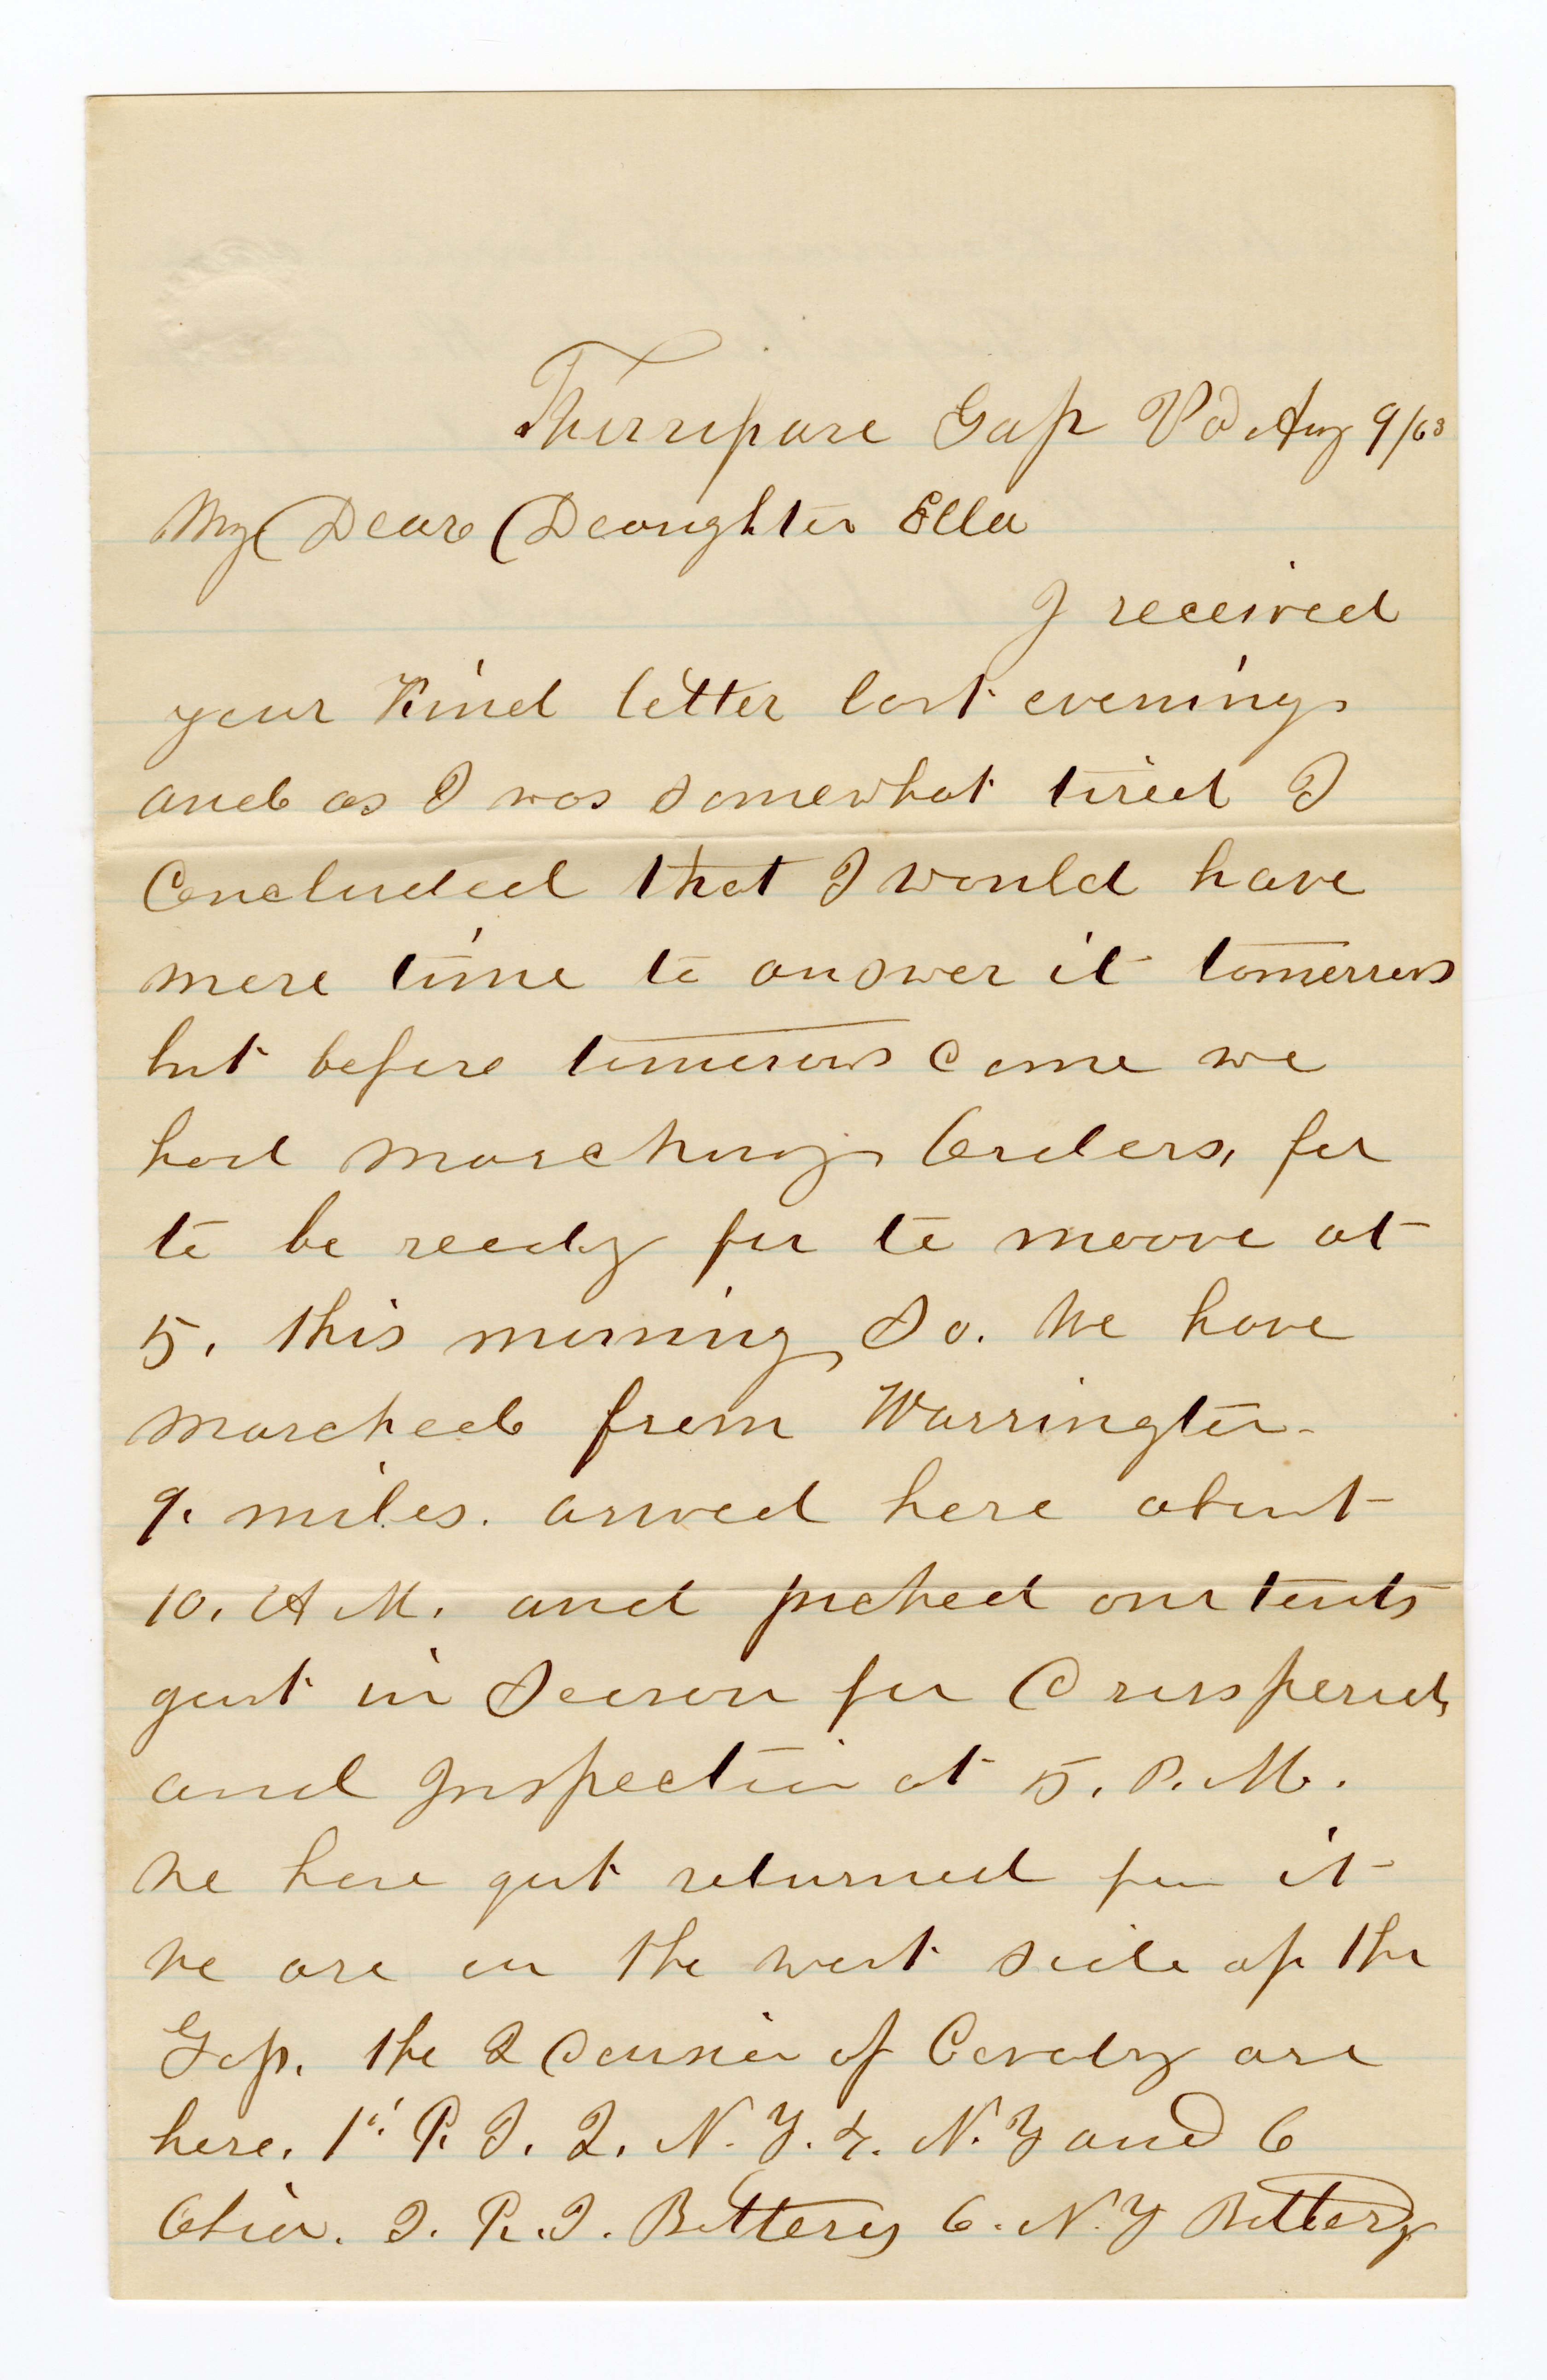 Thurripare Gap Va Aug 9/63
My Dear Daughter Ella
I received
your Kind letter last evening
and as I was somewhat tired I
Concluded that I would have
more time to answer it tomorrow
but before tomorow came we
had marching Orders, for
to be ready for to moove at
5. this morning, So. We have
marched from Warrington
9. miles. arived here about
10. A M. and piched our tents
just in Season for
and Inspection at 5. P. M.
We have just returned from it
We are on the west side of the
Gap. the 2 of Cavalry are
here. 1st R. I. 2. N. Y. 4. N. Y and 6
Ohio. R. I. Battery 6. N. Y Battery